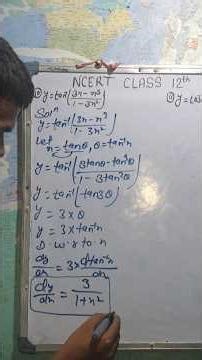 NCERT CLASS 12th
① y = tan⁻¹(3x - x³ / 1 - 3x²)
② y = cos
Solⁿ
y = tan⁻¹(3x - x³ / 1 - 3x²)
Let x = tanθ, θ = tan⁻¹x
y = tan⁻¹(3tanθ - tan³θ / 1 - 3tan²θ)
y = tan⁻¹(tan3θ)
y = 3 × θ
y = 3 × tan⁻¹x
D. w. r to x
dy/dx = 3 × dtan⁻¹x/dx
dy/dx = 3 / 1 + x²